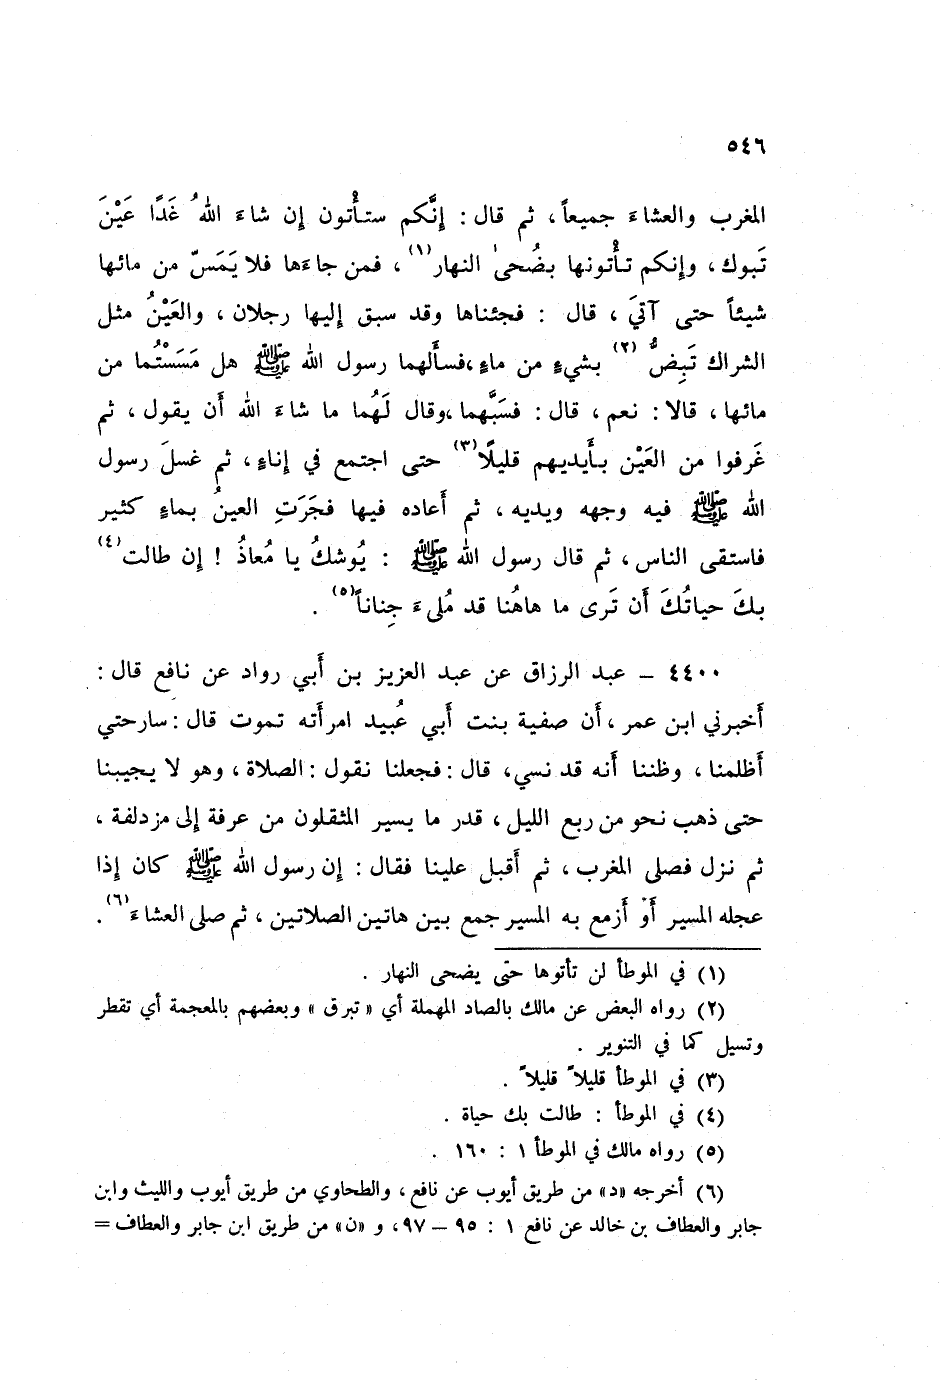 ٥٤٦
المغرب والعشاءَ جميعاً، ثم قال: إِنَّكم ستأْتون إِن شاءَ اللهُ غَدًا عَيْنَ
تَبوك، وإِنكم تأْتونها بضُحىٰ النهار(١)، فمن جاءَها فلا يَمَسّ من مائها
شيئاً حتى آتيَ، قال : فجئناها وقد سبق إِليها رجلان، والعَيْنُ مثل
الشراك تَبِضُّ(٢) بشيءٍ من ماءٍ،فسأَلهما رسول الله ﷺ هل مَسَسْتُما من
مائها، قالا: نعم، قال: فسَبَّهما،وقال لَهُما ما شاءَ الله أَن يقول، ثم
غَرفوا من العَيْن بأَيديهم قليلًا(٣) حتى اجتمع في إِناءٍ، ثم غسلَ رسول
الله ﷺ فيه وجهه ويديه، ثم أَعاده فيها فجَرَتِ العينُ بماءٍ كثير
فاستقى الناس، ثم قال رسول الله ﷺ : يُوشكُ يا مُعاذُ ! إِن طالت(٤)
بكَ حياتُكَ أَن تَرى ما هاهُنا قد مُلىءَ جِناناً(٥) .
٤٤٠٠ – عبد الرزاق عن عبد العزيز بن أَبي رواد عن نافع قال:
أَخبرني ابن عمر،أَن صفية بنت أَبي عُبيد امرأَته تموت قال:سارحتي
أَظلمنا، وظننا أَنه قد نسي، قال:فجعلنا نقول:الصلاة، وهو لا يجيبنا
حتى ذهب نحو من ربع الليل، قدر ما يسير المثقلون من عرفة إِلى مزدلفة،
ثم نزل فصلى المغرب، ثم أَقبل علينا فقال: إِن رسول الله ﷺ كان إِذا
عجله المسير أَوْ أَزمع به المسير جمع بين هاتين الصلاتين، ثم صلى العشاءَ(٦).
(١) في الموطأ لن تأتوها حتى يضحى النهار .
(٢) رواه البعض عن مالك بالصاد المهملة أي « تبرق » وبعضهم بالمعجمة أي تقطر
وتسيل كما في التنوير .
(٣) في الموطأ قليلاً قليلاً .
(٤) في الموطأ : طالت بك حياة .
(٥) رواه مالك في الموطأ ١ : ١٦٠ .
(٦) أخرجه «د» من طريق أيوب عن نافع، والطحاوي من طريق أيوب والليث وابن
جابر والعطاف بن خالد عن نافع ١ : ٩٥ – ٩٧، و «ن» من طريق ابن جابر والعطاف =